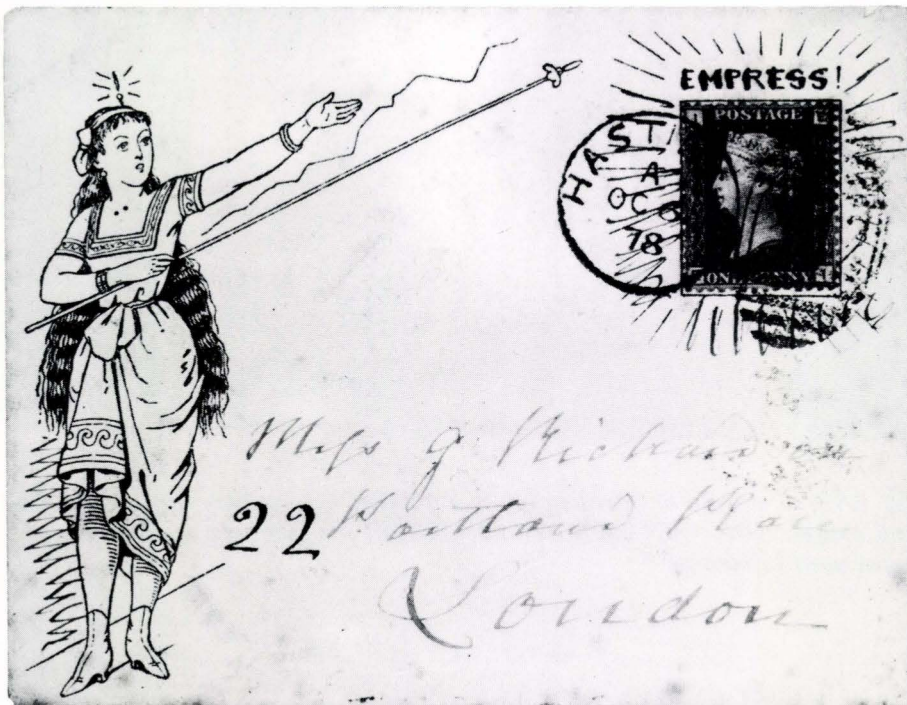 EMPRESS!
POSTAGE
ONE PENNY
HAST
A
OC 6
78
Miss G Richardson
22 Portland Place
London